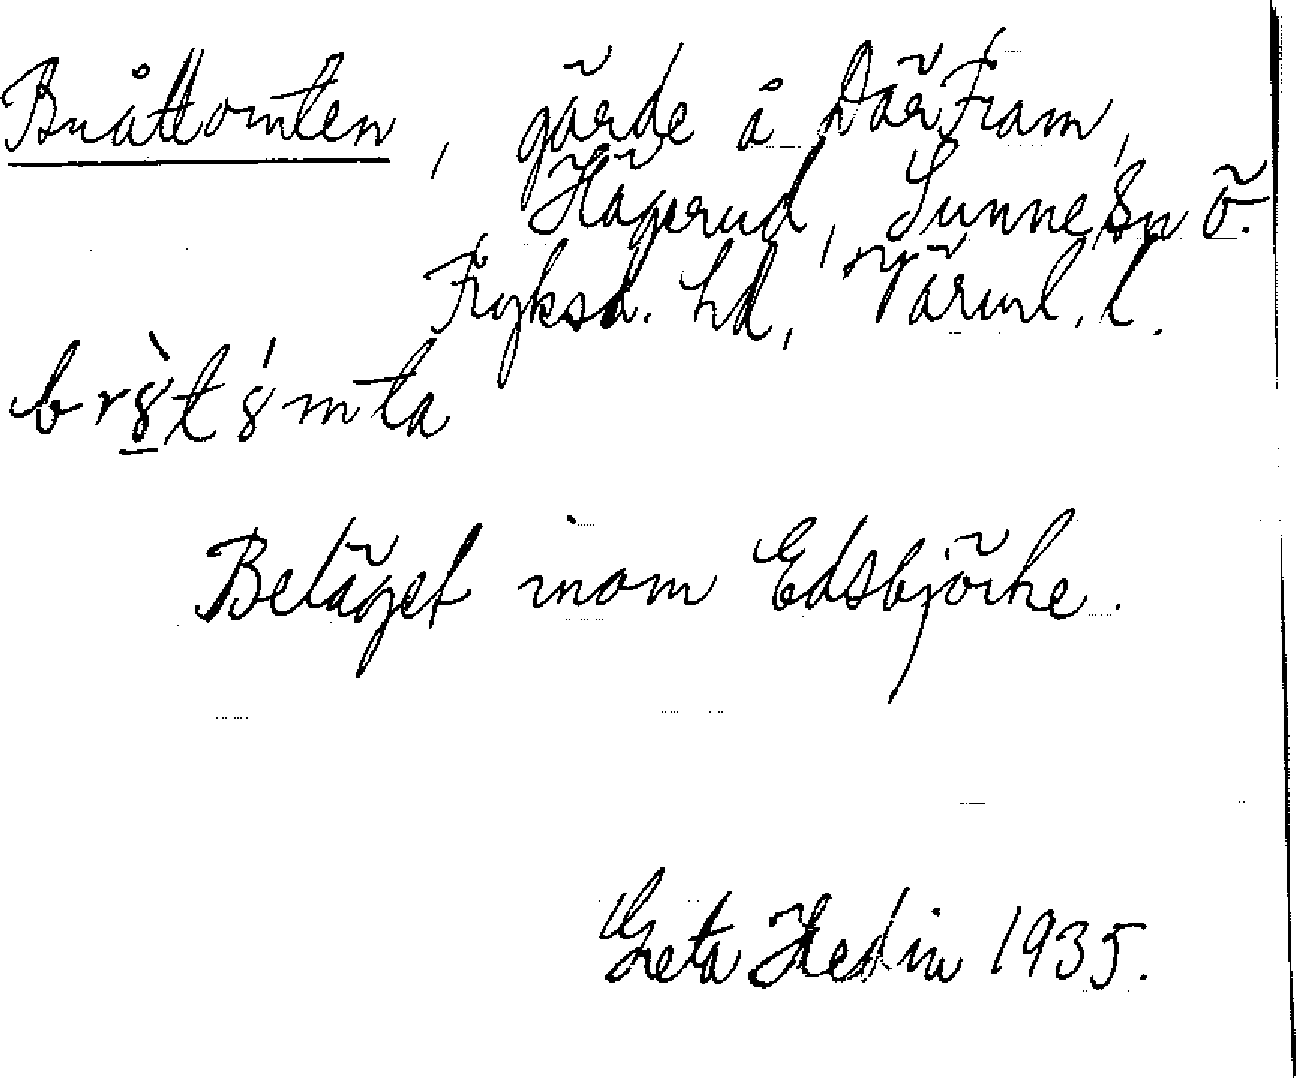 Bråttomten, gärde å Där Fram,
Hägerud, Sunne sn Ö.
Fryksd. hd, Värml. l.
Beläget inom Edsbjörke.
Greta Hedin 1935.